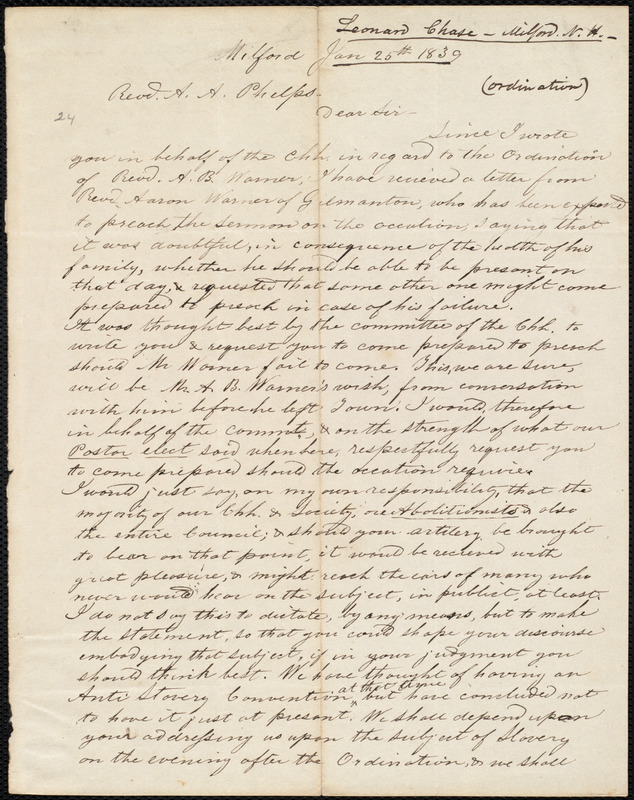 Leonard Chase – Milford. N. H. –
Milford Jan 25th 1839
(ordination)
Revd. A. A. Phelps –
24
Dear Sir –
Since I wrote
you in behalf of the Chh. in regard to the Ordination
of Revd. A. B. Warner, I have recieved a letter from
Revd Aaron Warner of Gilmanton, who has been expected
to preach the sermon on the occation, saying that
it was doubtful, in consequence of the health of his
family, whether he should be able to be present on
that day, & requested that some other one might come
prepared to preach in case of his failure.
It was thought best by the committee of the Chh. to
write you & request you to come prepared to preach
should Mr Warner fail to come. This, we are sure,
will be Mr. A. B. Warner's wish, from conversation
with him before he left Town. I would, therefore
in behalf of the committe, & on the strength of what our
Pastor elect said when here, respectfully request you
to come prepared should the occation require.
I would just say, on my own responsibility, that the
majority of our Chh. & Society, are Abolitionists & also
the entire Council; & should your artilery be brought
to bear on that point, it would be recieved with
great pleasure, & might reach the ears of many who
never would hear on the subject, in publick, at least.
I do not say this to dictate, by any means, but to make
the statement, so that you could shape your discourse
embodying that subject, if in your judgment you
should think best. We have thought of having an
Anti Slavery Convention at that time, but have concluded not
to have it just at present. We shall depend upon
your addressing us upon the subject of Slavery
on the evening after the Ordination, & we shall